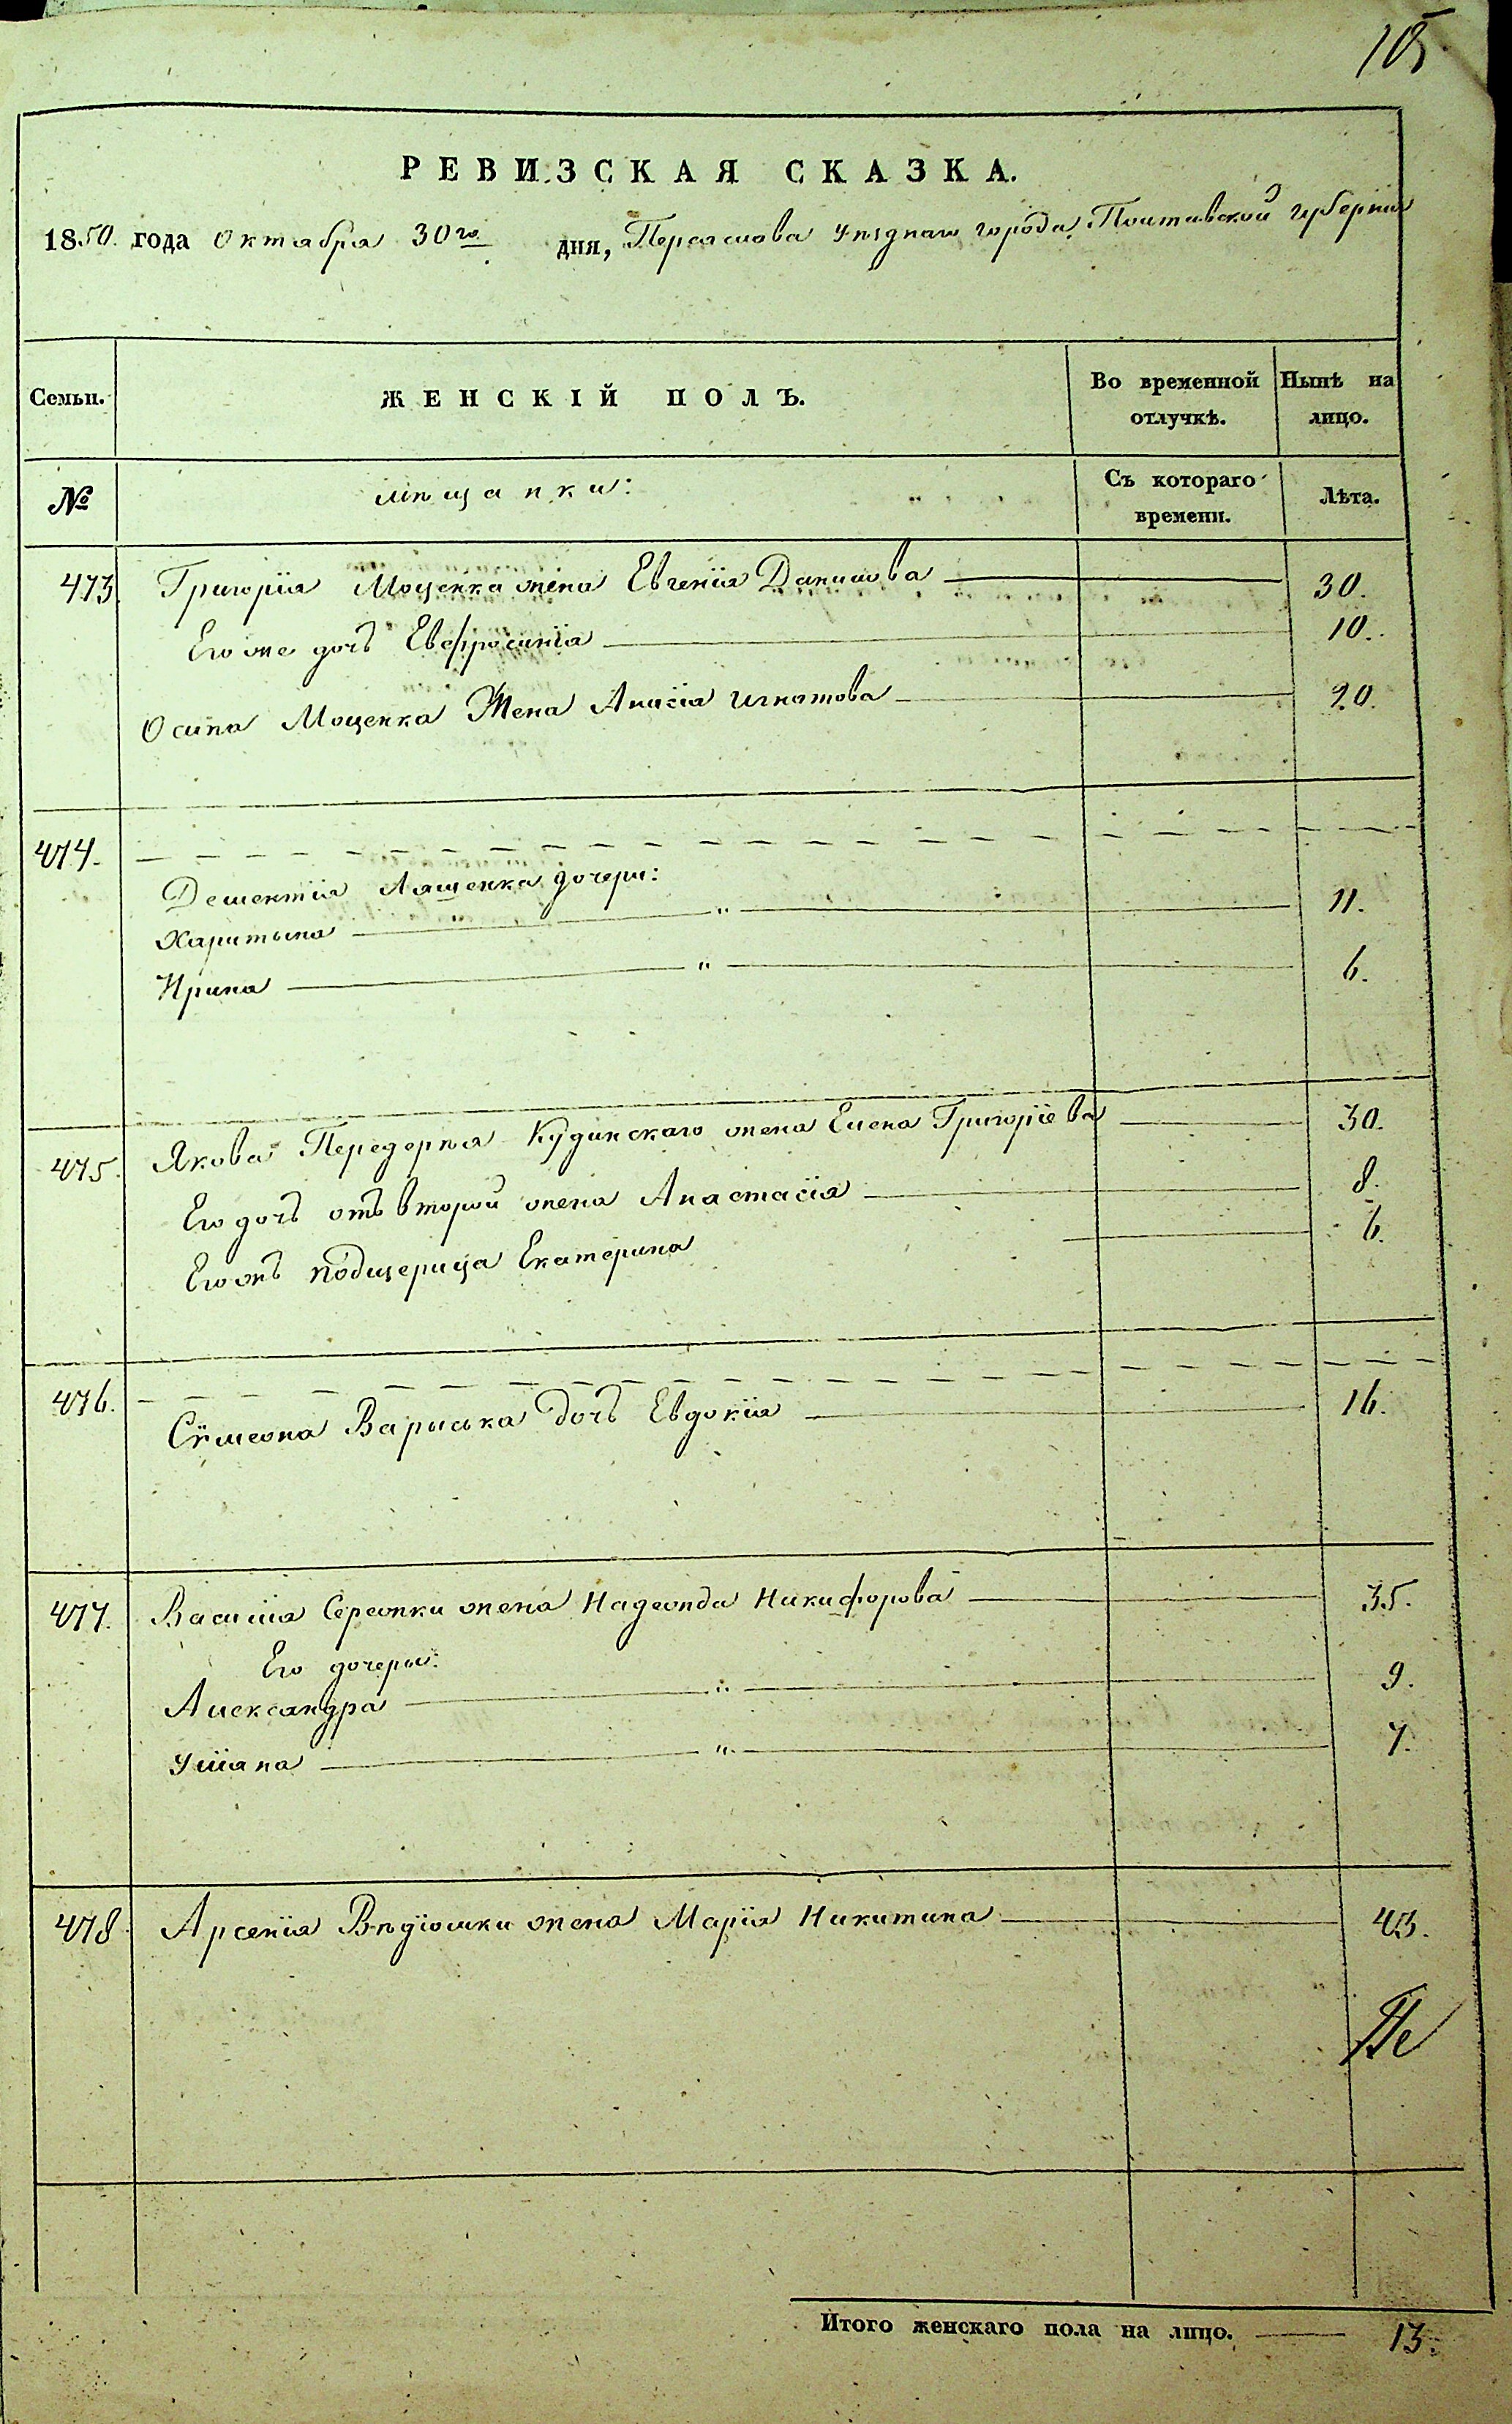 105
РЕВИЗСКАЯ СКАЗКА.
1850. года Октября 30го дня, Переяслова Уѣзднаго города, Полтавской губерніи
Семьи. ЖЕНСКІЙ ПОЛЪ. Во временной отлучкѣ. Нынѣ на лицо.
№ мѣщанки: Съ котораго времени. Лѣта.
473. Григорія Моценка жена Евгенія Данилова 30.
Его же дочь Евфросинія 10.
Осипа Моценка Жена Анисія Игнатова 20.
474.
Дементія Ляшенка дочери:
Харитына " " 11.
Ирина " 6.
475. Якова Передерѣя Кудинскаго жена Елена Григоріева 30.
Его дочь отъ второй жены Анастасія 8.
Его жъ подщерица Екатерина 6.
476.
Сѵмеона Варылка дочь Евдокія 16.
477. Василія Сережки жена Надежда Никифорова 35.
Его дочери:
Александра " 9.
Уліана " 7.
478. Арсенія Вѣдіошки жена Марія Никитина 43.
Пе
Итого женскаго пола на лицо. 13.